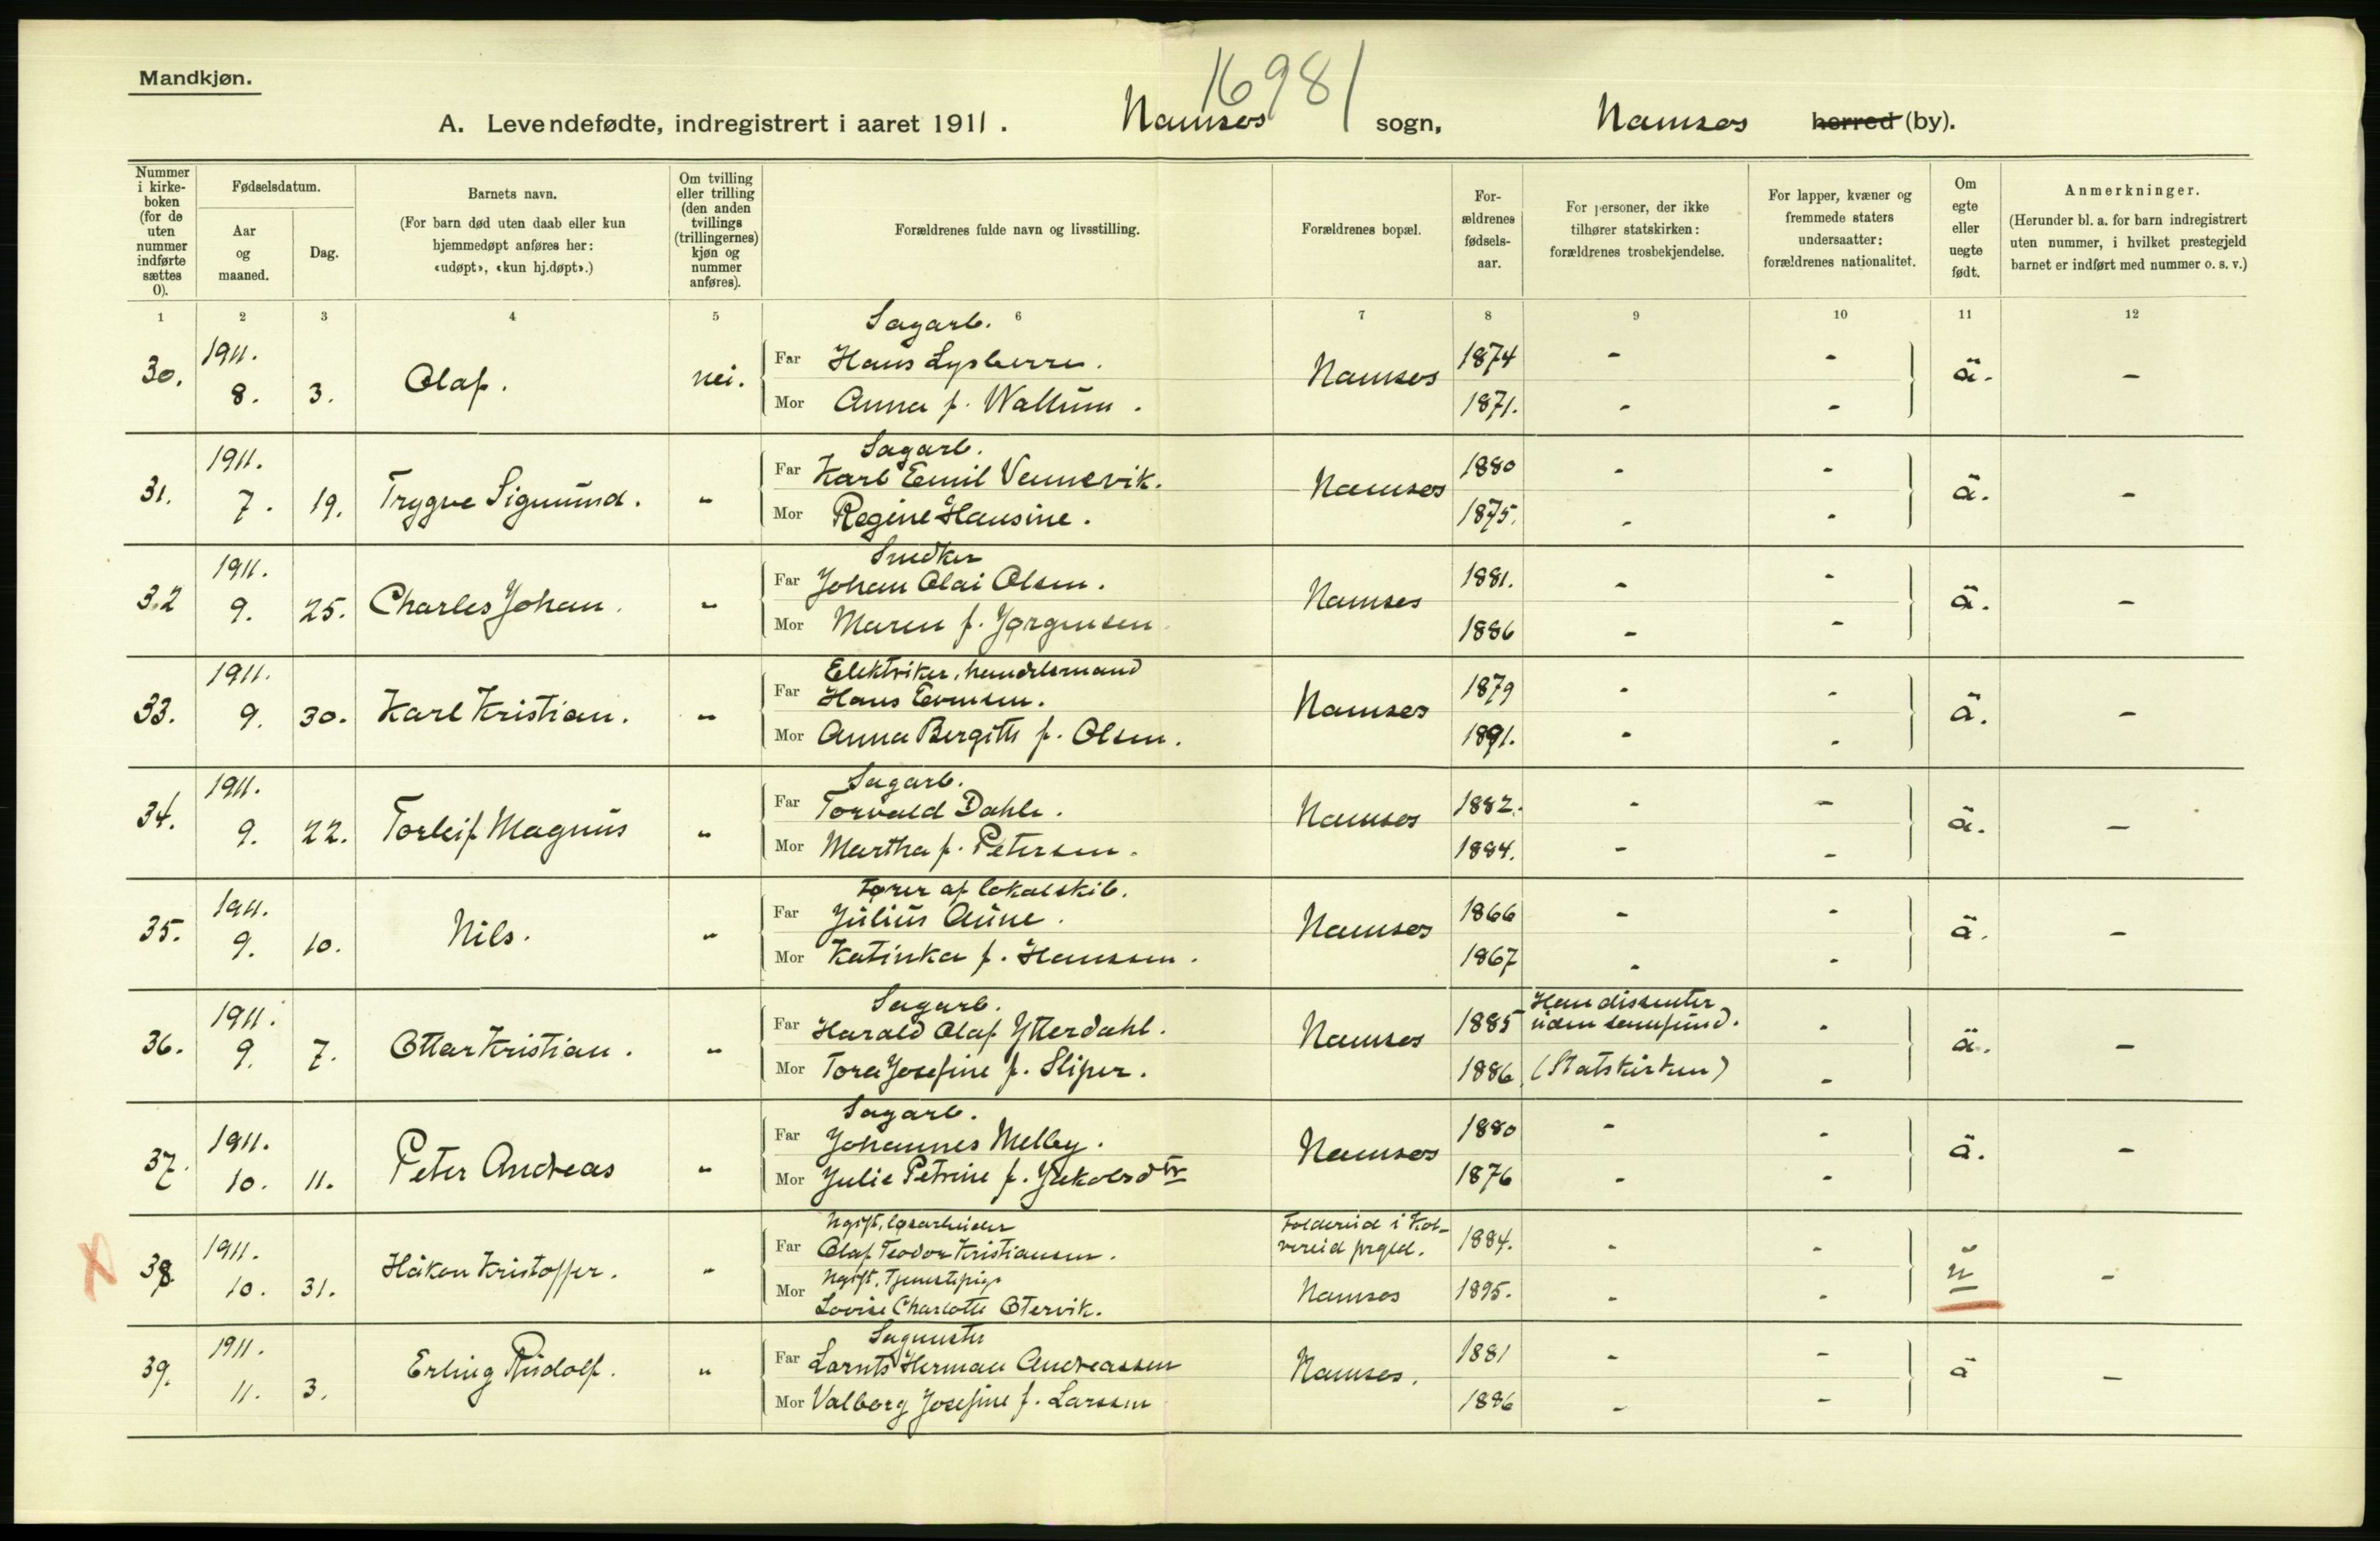 Mandkjøn.
16981
A. Levendefødte, indregistrert i aaret 1911. Namsos sogn, Namsos herred (by).
Nummer i kirkeboken (for de uten nummer indførte sættes 0).
Fødselsdatum.
Aar og maaned.
Dag.
Barnets navn.
(For barn død uten daab eller kun hjemmedøpt anføres her: «udøpt», «kun hj.døpt».)
Om tvilling eller trilling (den anden tvillings (trillingernes) kjøn og nummer anføres).
Forældrenes fulde navn og livsstilling.
Forældrenes bopæl.
Forældrenes fødselsaar.
For personer, der ikke tilhører statskirken: forældrenes trosbekjendelse.
For lapper, kvæner og fremmede staters undersaatter: forældrenes nationalitet.
Om egte eller uegte født.
Anmerkninger.
(Herunder bl. a. for barn indregistrert uten nummer, i hvilket prestegjeld barnet er indført med nummer o. s. v.)
1 2 3 4 5 6 7 8 9 10 11 12
Sagarb.
30. 1911. 8. 3. Olaf. nei. Far Hans Lysberre. Namsos 1874 - - ä. -
Mor Anna f. Wallum. 1871. - -
Sagarb.
31. 1911. 7. 19. Trygve Sigmund. " Far Karl Emil Vennevik. Namsos 1880 - - ä. -
Mor Regine Hansine. 1875. - -
Snedker
32 1911. 9. 25. Charles Johan. " Far Johan Olai Olsen. Namsos 1881. - - ä. -
Mor Maren f. Jørgensen 1886 - -
Elektriker, handelsmand
33. 1911. 9. 30. Karl Kristian. " Far Hans Evensen. Namsos 1879 - - ä. -
Mor Anna Bergitte f. Olsen. 1891. - -
Sagarb.
34. 1911. 9. 22. Torleif Magnus " Far Torvald Dahle. Namsos 1882. - - ä. -
Mor Martha f. Petersen. 1884. - -
Fører af lokalskib.
35. 1911. 9. 10. Nils. " Far Julius Aune. Namsos 1866 - - ä. -
Mor Katinka f. Hanssen. 1867 - -
Sagarb.
36. 1911. 9. 7. Ottar Kristian. " Far Harald Olaf Ytterdahl. Namsos 1885 Han dissenter uden samfund. - ä. -
Mor Tora Josefine f. Sliper. 1886 (Statskirken) -
Sagarb.
37. 1911. 10. 11. Peter Andreas " Far Johannes Melby. Namsos 1880 - - ä. -
Mor Julie Petrine f. Jakobsdtr 1876 - -
Ugift, løsarbeider
X 38. 1911. 10. 31. Håkon Kristoffer. " Far Olaf Teodor Kristiansen. Foldereid i Kolvereid prgld. 1884. - - ŭ -
Ugift, Tjenestepige
Mor Lovise Charlotte Otervik. Namsos 1895. - -
Sagmester
39. 1911. 11. 3. Erling Rudolf. " Far Larnts Herman Andreassen Namsos. 1881 - - ä -
Mor Valborg Josefine f. Larssen 1886 - -